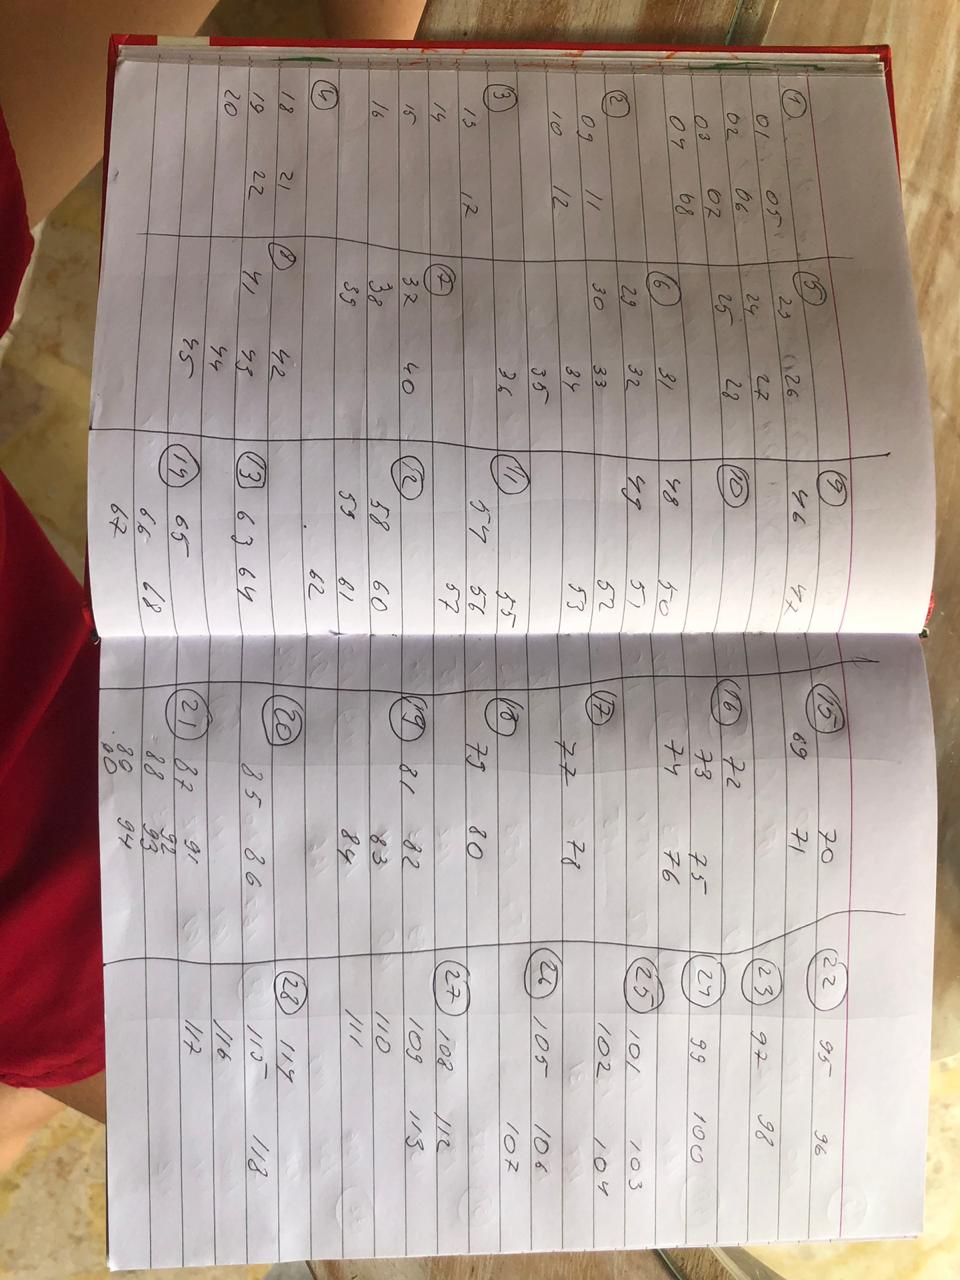 ①
01 05
02 06
03 07
04 08
②
09 11
10 12
③
13 17
14
15
16
④
18 21
19 22
20
⑤
23 26
24 27
25 28
⑥ 31
29 32
30 33
34
35
36
⑦
37 40
38
39
⑧ 42
41 43
44
45
⑨
46 47
⑩
48 50
49 51
52
53
⑪ 55
54 56
57
⑫
58 60
59 61
62
⑬ 63 64
⑭ 65
66 68
67
⑮ 70
69 71
⑯ 72
73 75
74 76
⑰
77 78
⑱
79 80
⑲ 81 82
83
84
⑳
85 86
㉑ 87 91
92
88 93
89 94
90
㉒ 95 96
㉓ 97 98
㉔ 99 100
㉕ 101 103
102 104
㉖ 105 106
107
㉗ 108 112
109 113
110
111
㉘ 114
115 118
116
117